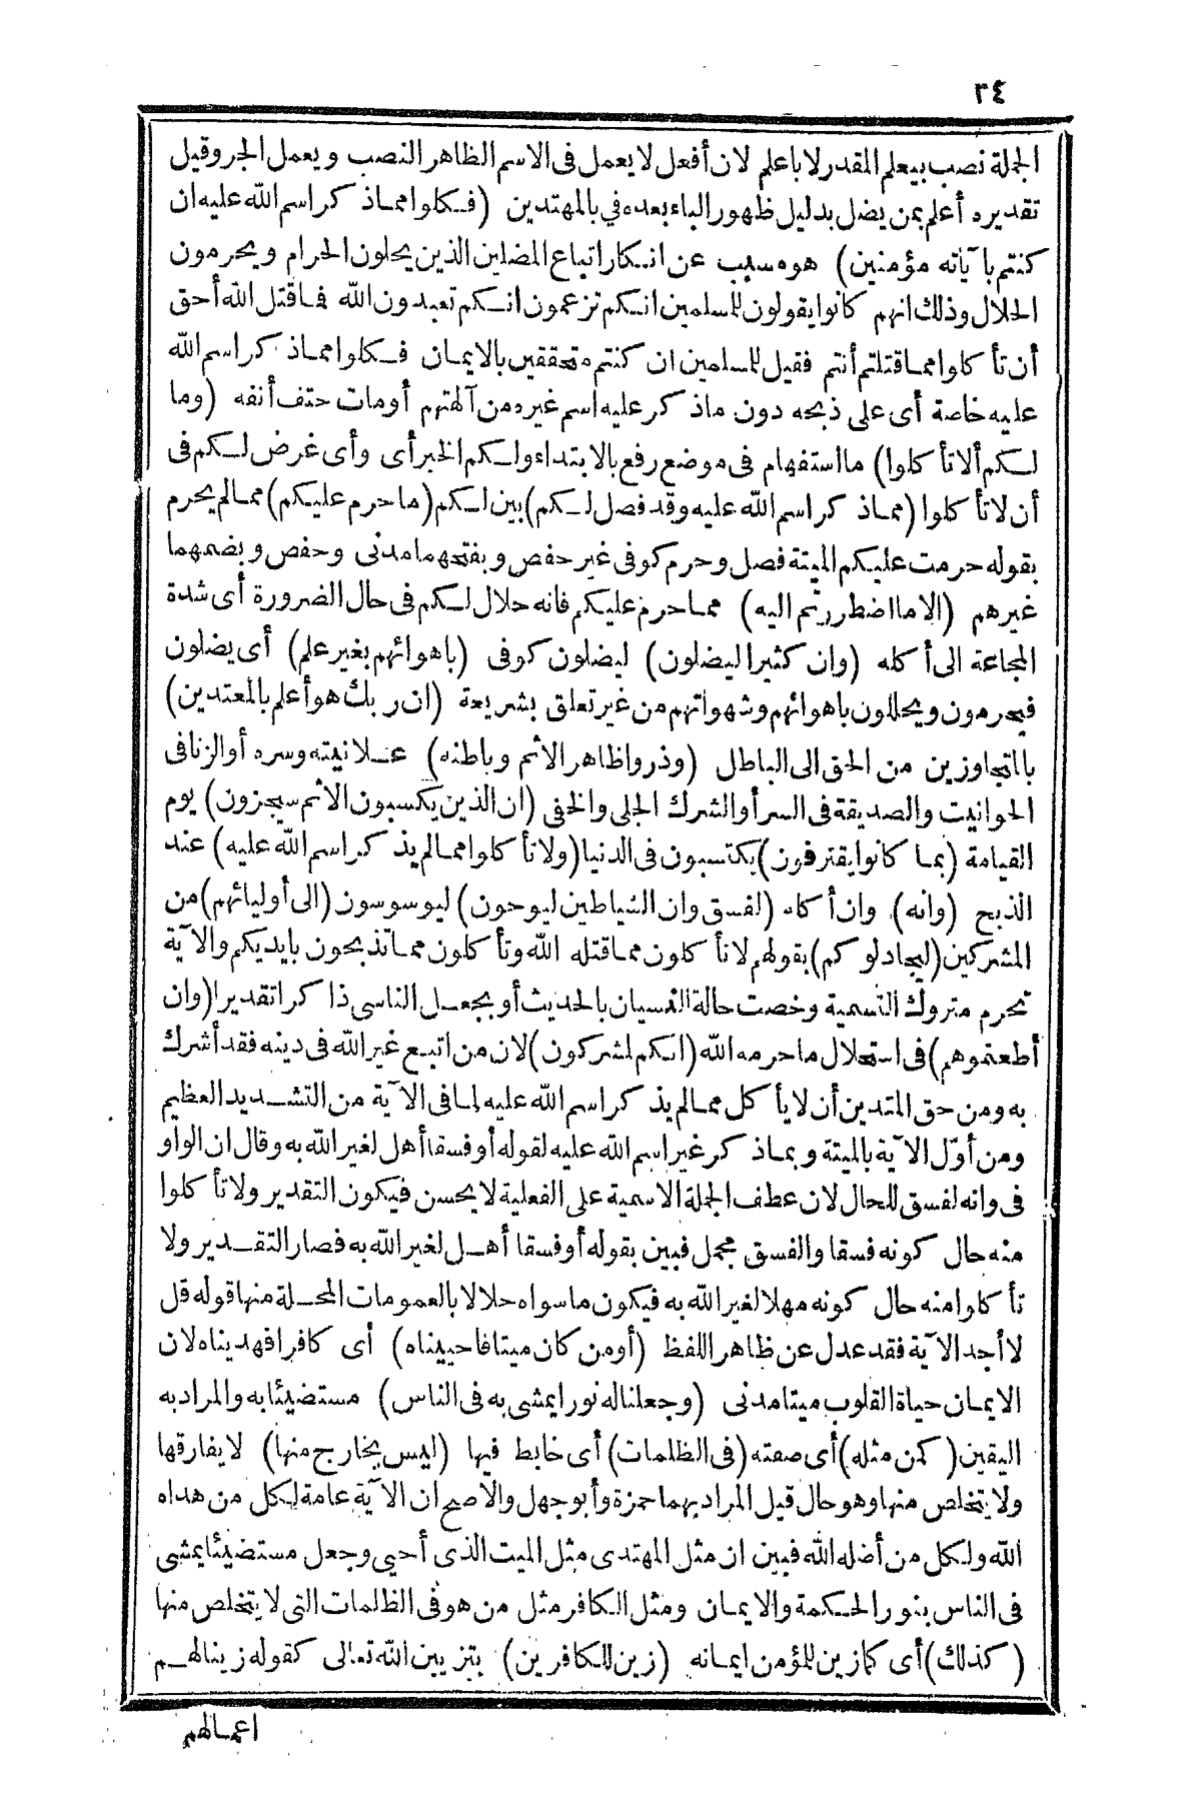 ٣٤
الجملة نصب بيعلم المقدر لا باعلم لان أفعل لا يعمل فى الاسم الظاهر النصب ويعمل الجر وقيل
تقديره أعلم بمن يضل بدليل ظهور الباء بعده في بالمهتدين (فكلوا مما ذكر اسم الله عليه ان
كنتم بآياته مؤمنين) هو مسبب عن انكار اتباع المضلين الذين يحلون الحرام ويحرمون
الحلال وذلك انهم كانوا يقولون للمسلمين انكم تزعمون انكم تعبدون الله فما قتل الله أحق
أن تأكلوا مما قتلتم أنتم فقيل للمسلمين ان كنتم متحققين بالايمان فكلوا مما ذكر اسم الله
عليه خاصة أى على ذبحه دون ماذكر عليه اسم غيره من آلهتهم أو مات حتف أنفه (وما
لكم ألا تأكلوا) ما استفهام فى موضع رفع بالابتداء ولكم الخبر أى وأى غرض لكم فى
أن لا تأكلوا (مما ذكر اسم الله عليه وقد فصل لكم) بين لكم (ما حرم عليكم) مما لم يحرم
بقوله حرمت عليكم الميتة فصل وحرم كوفى غير حفص وبفتحهما مدنى وحفص وبضمهما
غيرهم (الا ما اضطررتم اليه) مما حرم عليكم فانه حلال لكم فى حال الضرورة أى شدة
المجاعة الى أكله (وان كثيرا ليضلون) ليضلون كوفى (باهوائهم بغير علم) أى يضلون
فيحرمون ويحللون باهوائهم وشهواتهم من غير تعلق بشريعة (ان ربك هو أعلم بالمعتدين)
بالمتجاوزين من الحق الى الباطل (وذروا ظاهر الاثم وباطنه) علانيته وسره أو الزنا فى
الحوانيت والصديقة فى السر أو الشرك الجلى والخفى (ان الذين يكسبون الاثم سيجزون) يوم
القيامة (بما كانوا يقترفون) يكتسبون فى الدنيا (ولا تأكلوا مما لم يذكر اسم الله عليه) عند
الذبح (وانه) وان أكله (لفسق وان الشياطين ليوحون) ليوسوسون (الى أوليائهم) من
المشركين (ليجادلوكم) بقولهم لا تأكلون مما قتله الله وتأكلون مما تذبحون بايديكم والآية
تحرم متروك التسمية وخصت حالة النسيان بالحديث أو بجعل الناسى ذاكرا تقديرا (وان
أطعتموهم) فى استحلال ما حرمه الله (انكم لمشركون) لان من اتبع غير الله فى دينه فقد أشرك
به ومن حق المتدين أن لا يأكل مما لم يذكر اسم الله عليه لما فى الآية من التشديد العظيم
ومن أوّل الآية بالميتة وبما ذكر غير اسم الله عليه لقوله أو فسقا أهل لغير الله به وقال ان الواو
فى وانه لفسق للحال لان عطف الجملة الاسمية على الفعلية لا يحسن فيكون التقدير ولا تأكلوا
منه حال كونه فسقا والفسق مجمل فبين بقوله أو فسقا أهل لغير الله به فصار التقدير ولا
تأكلوا منه حال كونه مهلا لغير الله به فيكون ما سواه حلالا بالعمومات المحلة منها قوله قل
لا أجد الآية فقد عدل عن ظاهر اللفظ (أومن كان ميتا فاحييناه) أى كافرا فهديناه لان
الايمان حياة القلوب ميتا مدنى (وجعلنا له نورا يمشى به فى الناس) مستضيئا به والمراد به
اليقين (كمن مثله) أى صفته (فى الظلمات) أى خابط فيها (ليس بخارج منها) لا يفارقها
ولا يتخلص منها وهو حال قيل المراد بهما حمزة وأبو جهل والاصح ان الآية عامة لكل من هداه
الله ولكل من أضله الله فبين ان مثل المهتدى مثل الميت الذى أحيى وجعل مستضيئا يمشى
فى الناس بنور الحكمة والايمان ومثل الكافر مثل من هو فى الظلمات التى لا يتخلص منها
(كذلك) أى كما زين للمؤمن ايمانه (زين للكافرين) بتزيين الله تعالى كقوله زينا لهم
اعمالهم